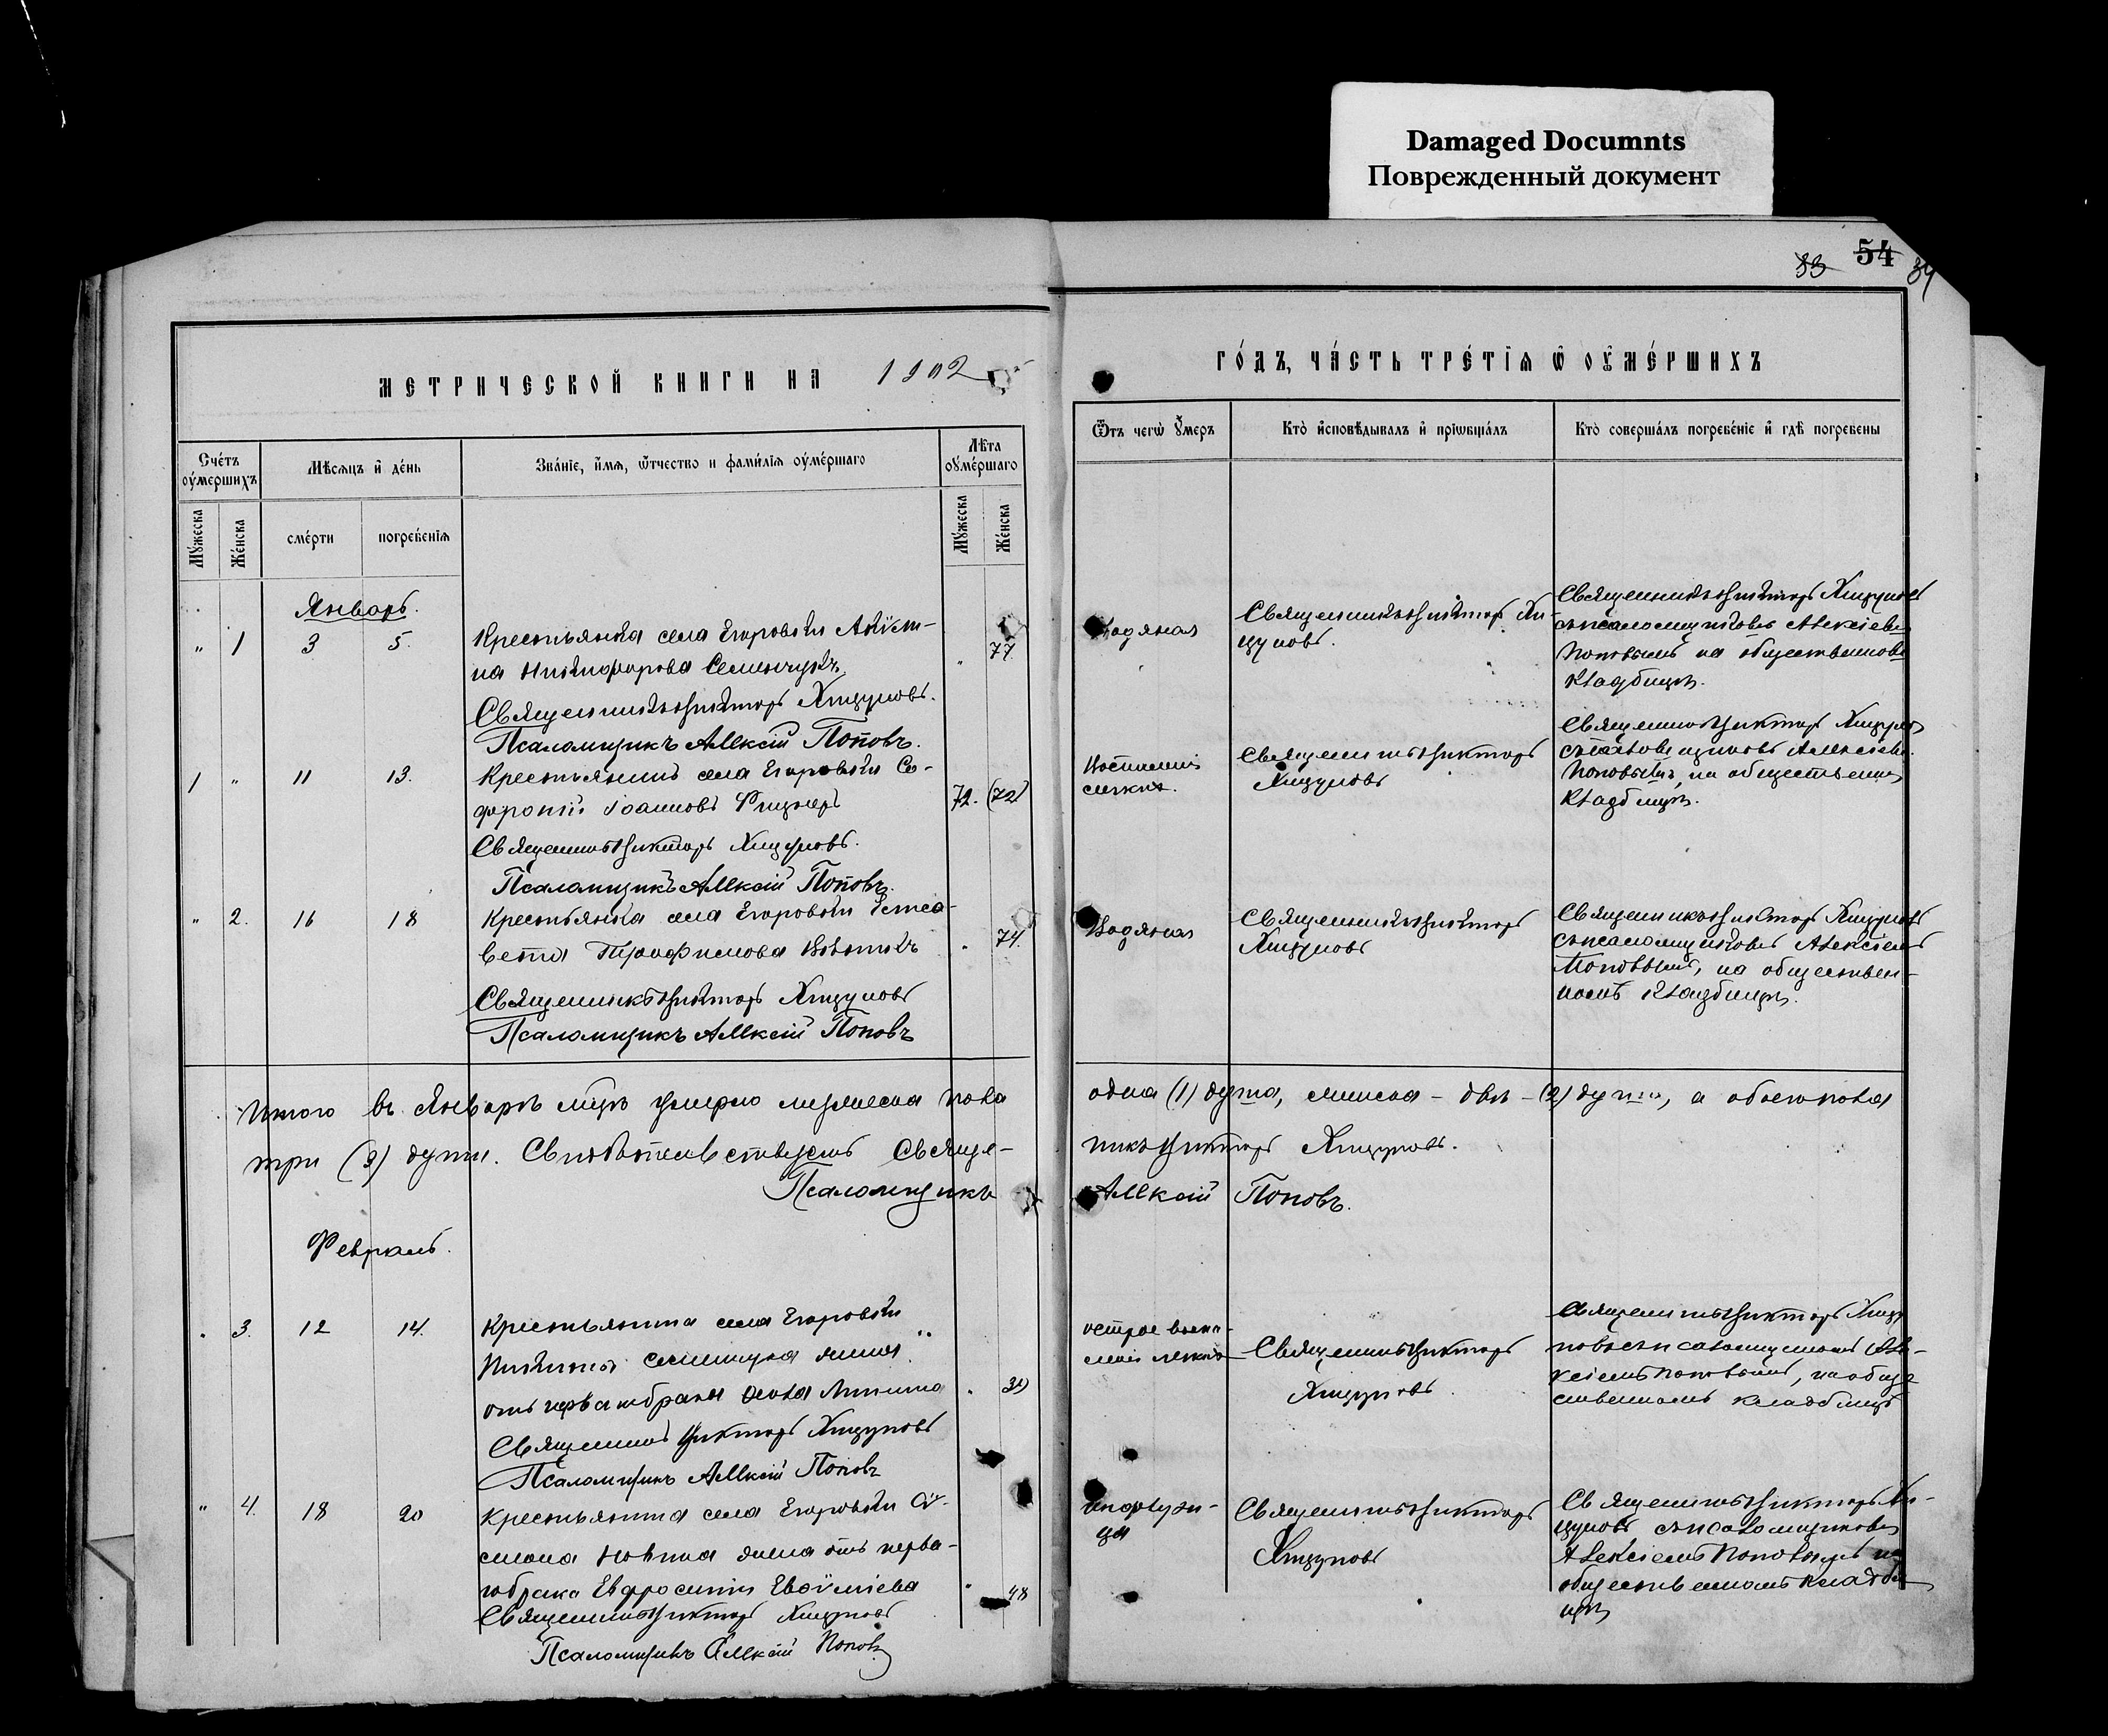 Damaged Documnts
Поврежденный документ
33 54 34
МЕТРИЧЕСКОЙ КНИГИ НА 1902
ГО́ДЪ, ЧА́СТЬ ТРЕ́ТІѦ Ѿ ОУ҆МЕ́РШИХЪ
Сче́тъ оу҆ме́ршихъ
Мѣсѧцъ и҆ де́нь
Зва́нїе, и҆́мѧ, ѻ҆́тчество и фами́лїѧ оу҆ме́ршаго
Лѣ́та оу҆ме́ршаго
Мꙋ́жеска
Же́нска
сме́рти
погребе́нїѧ
Мꙋ́жеска
Же́нска
Ѿ чегѡ̀ оу҆́меръ
Кто̀ и҆сповѣ́дывалъ и҆ прїѡбща́лъ
Кто̀ соверша́лъ погребе́нїе и҆ гдѣ̀ погребены
Январь.
" 1 3 5. Крестьянка села Егоровки Акули-
на Никифорова Семенчукъ " 77
Священникъ Викторъ Хицуновъ.
Псаломщикъ Алексій Поповъ.
Водяная
Священникъ Викторъ Хи-
цуновъ.
Священникъ Викторъ Хицуновъ
съ псаломщикомъ Алексіемъ
Поповымъ на общественномъ
кладбищѣ.
1 " 11 13. Крестьянинъ села Егоровки Со-
фроній Іоанновъ 72. (72)
Священникъ Викторъ Хицуновъ.
Псаломщикъ Алексій Поповъ.
Воспаленіе
легкихъ.
Священникъ Викторъ
Хицуновъ
Священникъ Викторъ Хицуновъ
съ псаломщикомъ Алексіемъ
Поповымъ, на общественномъ
кладбищѣ.
" 2. 16 18 Крестьянка села Егоровки Елиса-
вета Трофимова " 74.
Священникъ Викторъ Хицуновъ
Псаломщикъ Алексій Поповъ
Водяная
Священникъ Викторъ
Хицуновъ
Священникъ Викторъ Хицуновъ
съ псаломщикомъ Алексіемъ
Поповымъ, на обществен-
номъ кладбищѣ.
Итого въ Январѣ м-цѣ умерло мужеска пола одна (1) душа, женска – двѣ – (2) души, а обоего пола
три (3) души. Свидѣтельствуемъ Священ-
никъ Викторъ Хицуновъ.
Псаломщикъ Алексій Поповъ.
Февраль.
" 3. 12 14. Крестьянина села Егоровки
жена
отъ перваго брака Анна "
Священникъ Викторъ Хицуновъ
Псаломщикъ Алексій Поповъ
острое воспа-
леніе легкихъ
Священникъ Викторъ
Хицуновъ
Священникъ Викторъ Хицу-
новъ съ псаломщикомъ Але-
ксіемъ Поповымъ, на обще-
ственномъ кладбищѣ
" 4. 18 20 Крестьянина села Егоровки Си-
меона жена отъ перва-
го брака Евфросинія " 48
Священникъ Викторъ Хицуновъ
Псаломщикъ Алексій Поповъ
инфлуэн-
ца
Священникъ Викторъ
Хицуновъ
Священникъ Викторъ Хи-
цуновъ съ псаломщикомъ
Алексіемъ Поповымъ на
общественномъ кладби-
щѣ